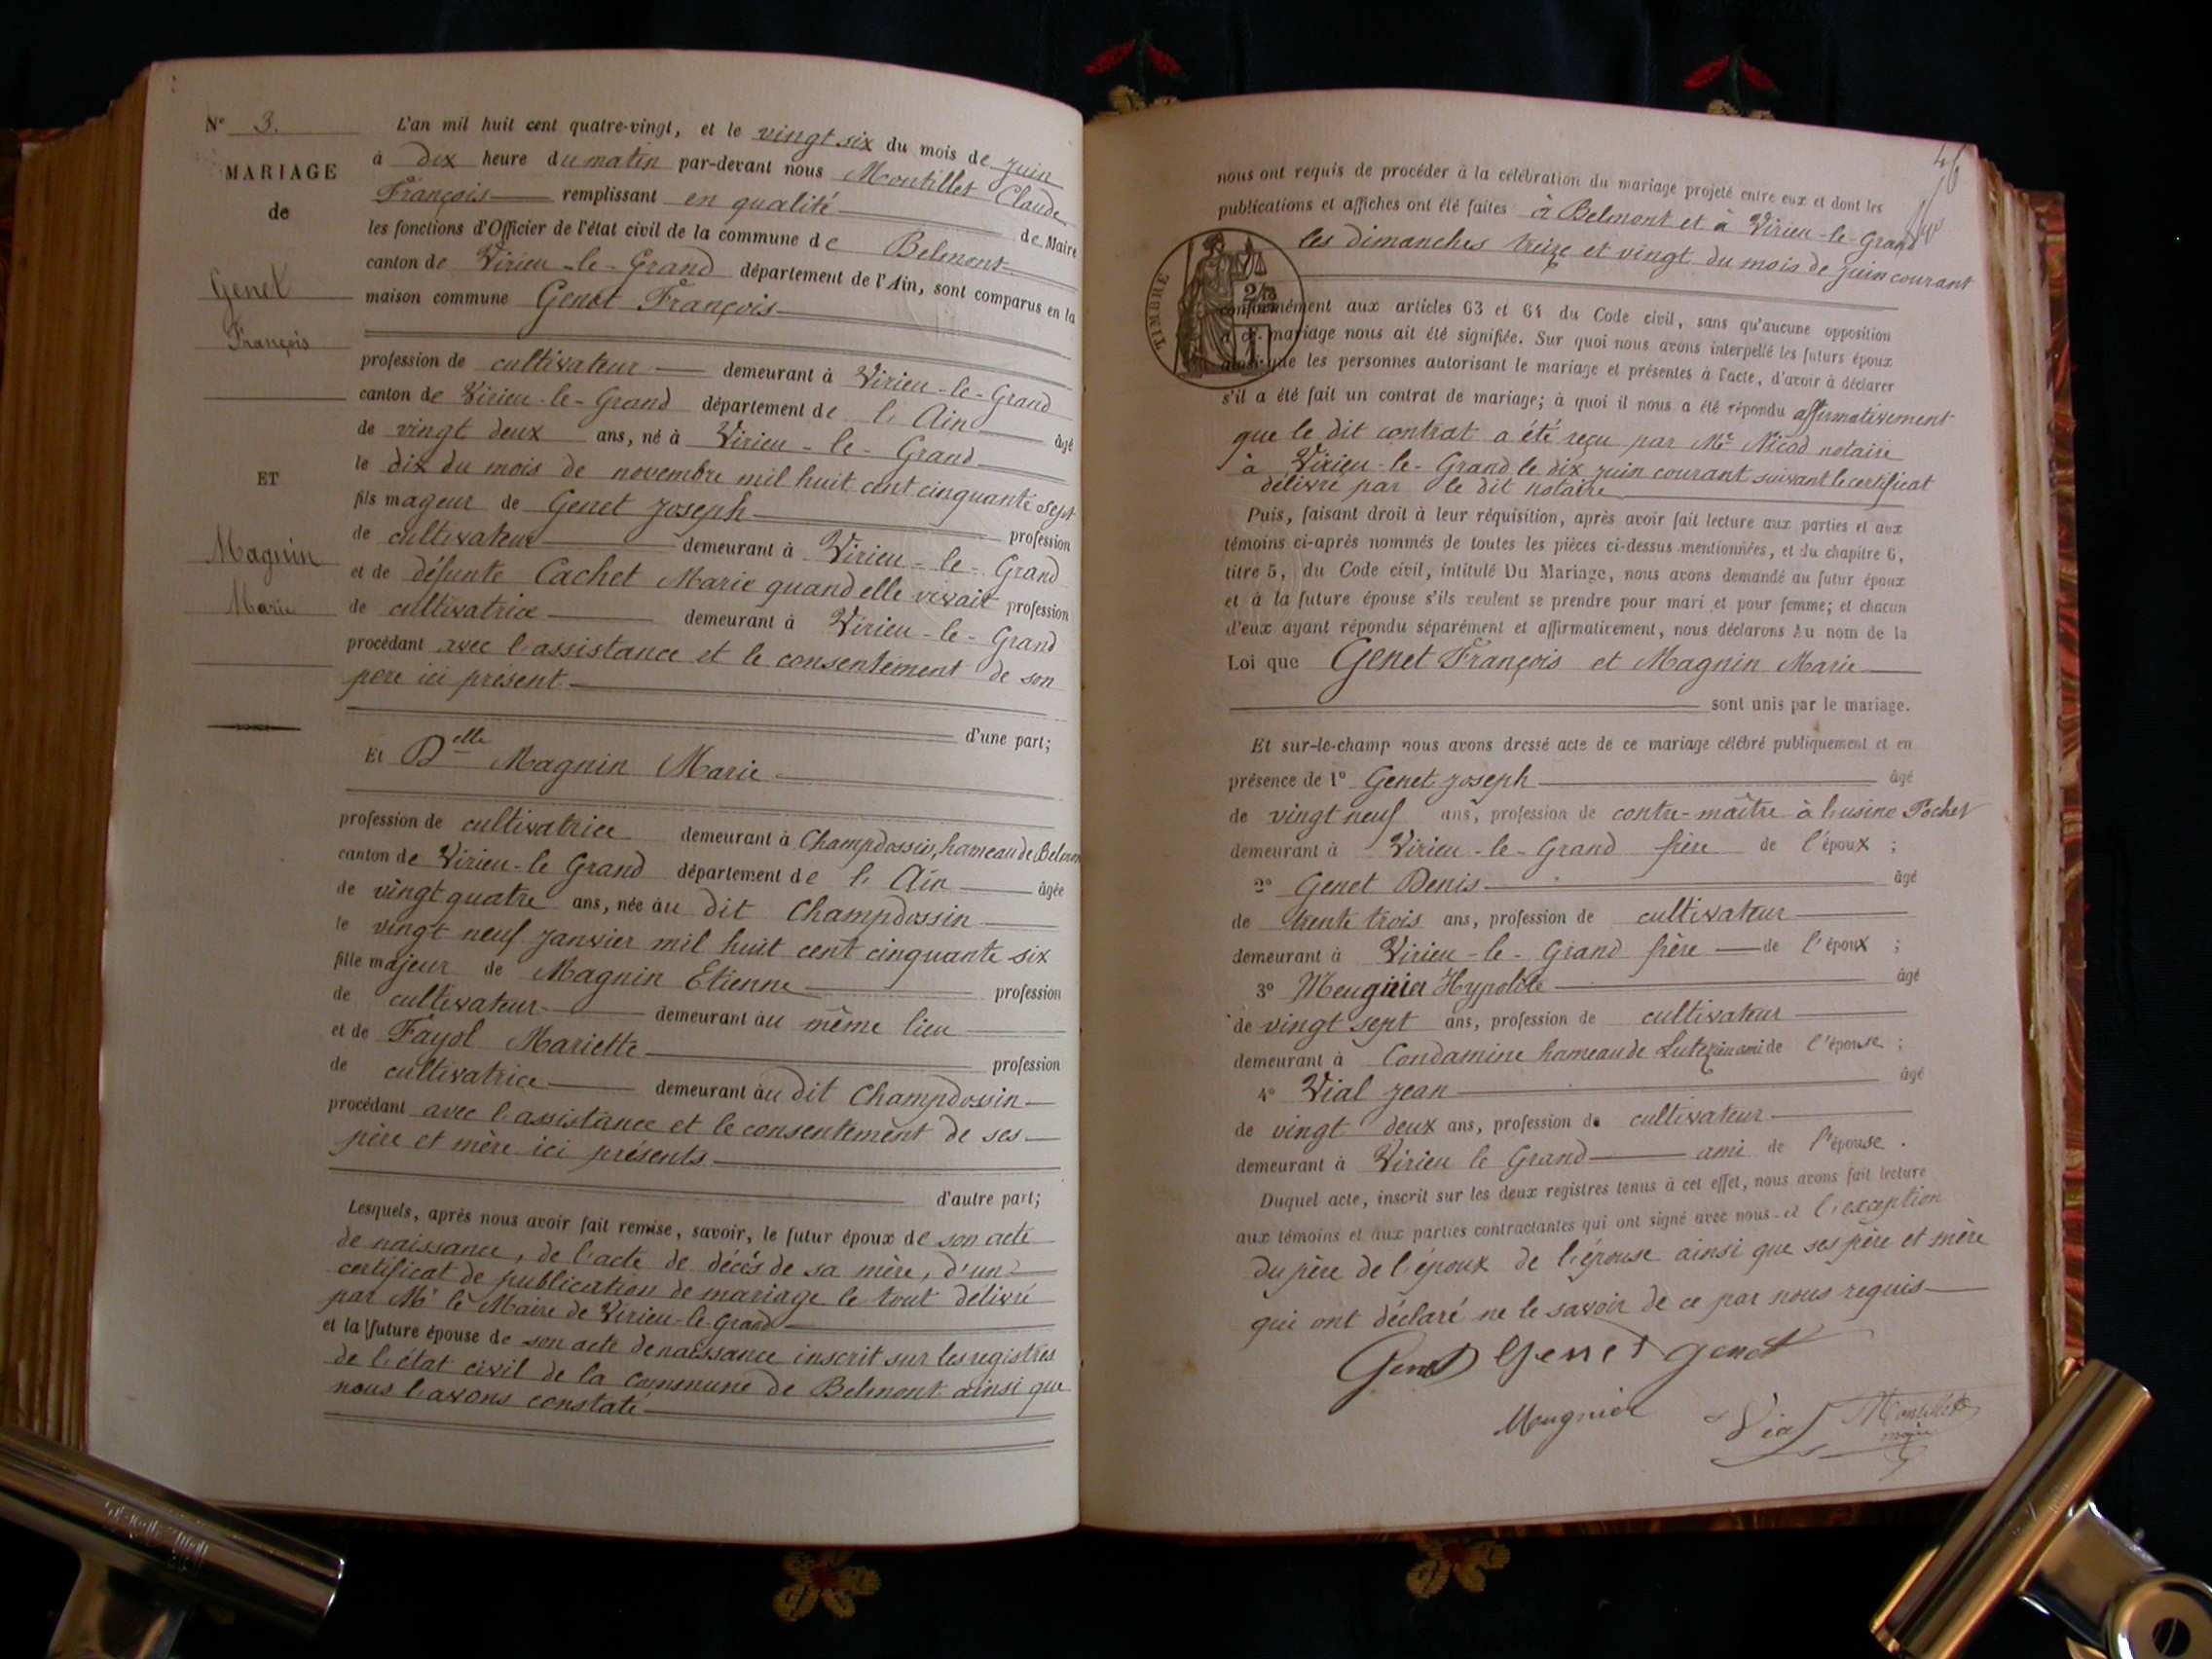 N° 3.
MARIAGE
de
Genet
François
ET
Magnin
Marie
L'an mil huit cent quatre-vingt, et le vingt six du mois de juin
à dix heure du matin par-devant nous Montillet Claude
François remplissant en qualité de Maire
les fonctions d'Officier de l'état civil de la commune de Belmont
canton de Virieu-le-Grand département de l'Ain, sont comparus en la
maison commune Genet François
profession de cultivateur demeurant à Virieu-le-Grand
canton de Virieu-le-Grand département de l'Ain âgé
de vingt deux ans, né à Virieu-le-Grand
le dix du mois de novembre mil huit cent cinquante sept
fils mageur de Genet Joseph profession
de cultivateur demeurant à Virieu-le-Grand
et de défunte Cachet Marie quand elle vivait profession
de cultivatrice demeurant à Virieu-le-Grand
procédant avec l'assistance et le consentement de son
père ici présent
d'une part;
Et Delle Magnin Marie
profession de cultivatrice demeurant à Champdossin, hameau de Belmont
canton de Virieu-le Grand département de l'Ain âgée
de vingt quatre ans, née au dit Champdossin
le vingt neuf janvier mil huit cent cinquante six
fille majeur de Magnin Etienne profession
de cultivateur demeurant au même lieu
et de Fayol Mariette profession
de cultivatrice demeurant au dit Champdossin
procédant avec l'assistance et le consentement de ses
père et mère ici présents
d'autre part;
Lesquels, après nous avoir fait remise, savoir, le futur époux de son acte
de naissance, de l'acte de décès de sa mère, d'un
certificat de publication de mariage le tout délivré
par Mr le Maire de Virieu-le-Grand
et la future épouse de son acte de naissance inscrit sur les registres
de l'état civil de la commune de Belmont ainsi que
nous l'avons constaté
46
nous ont requis de procéder à la célébration du mariage projeté entre eux et dont les
publications et affiches ont été faites à Belmont et à Virieu-le-Grand
les dimanches treize et vingt du mois de juin courant
TIMBRE
conformément aux articles 63 et 64 du Code civil, sans qu'aucune opposition
à ce mariage nous ait été signifiée. Sur quoi nous avons interpellé les futurs époux
ainsi que les personnes autorisant le mariage et présentes à l'acte, d'avoir à déclarer
s'il a été fait un contrat de mariage; à quoi il nous a été répondu affirmativement
que le dit contrat a été reçu par Me Nicod notaire
à Virieu-le-Grand le dix juin courant suivant le certificat
délivré par le dit notaire
Puis, faisant droit à leur réquisition, après avoir fait lecture aux parties et aux
témoins ci-après nommés de toutes les pièces ci-dessus mentionnées, et du chapitre 6,
titre 5, du Code civil, intitulé Du Mariage, nous avons demandé au futur époux
et à la future épouse s'ils veulent se prendre pour mari et pour femme; et chacun
d'eux ayant répondu séparément et affirmativement, nous déclarons Au nom de la
Loi que Genet François et Magnin Marie
sont unis par le mariage.
Et sur-le-champ nous avons dressé acte de ce mariage célébré publiquement et en
présence de 1° Genet Joseph âgé
de vingt neuf ans, profession de contre-maître à l'usine Pochet
demeurant à Virieu-le-Grand frère de l'époux ;
2° Genet Denis âgé
de trente trois ans, profession de cultivateur
demeurant à Virieu-le-Grand frère de l'époux ;
3° Meugnier Hypolite âgé
de vingt sept ans, profession de cultivateur
demeurant à Condamine hameau de ami de l'épouse ;
4° Vial Jean âgé
de vingt deux ans, profession de cultivateur
demeurant à Virieu le Grand ami de l'épouse .
Duquel acte, inscrit sur les deux registres tenus à cet effet, nous avons fait lecture
aux témoins et aux parties contractantes qui ont signé avec nous à l'exception
du père de l'époux de l'épouse ainsi que ses père et mère
qui ont déclaré ne le savoir de ce par nous requis
Genet Genet Genet
Meugnier Vial Montillet
maire